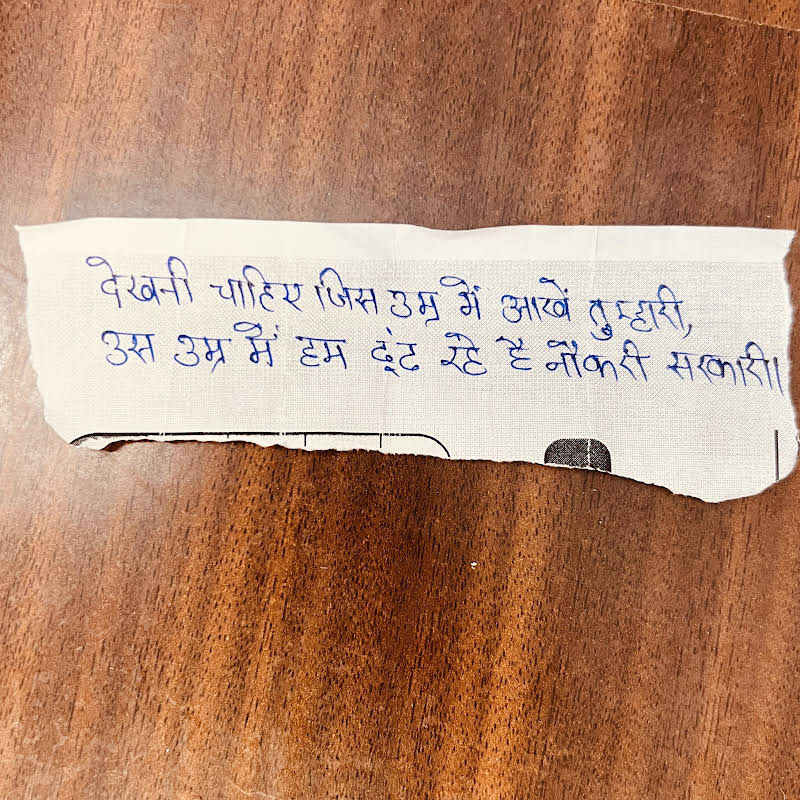 देखनी चाहिए जिस उम्र में आखें तुम्हारी,
उस उम्र में हम ढूंढ रहे है नौकरी सरकारी।